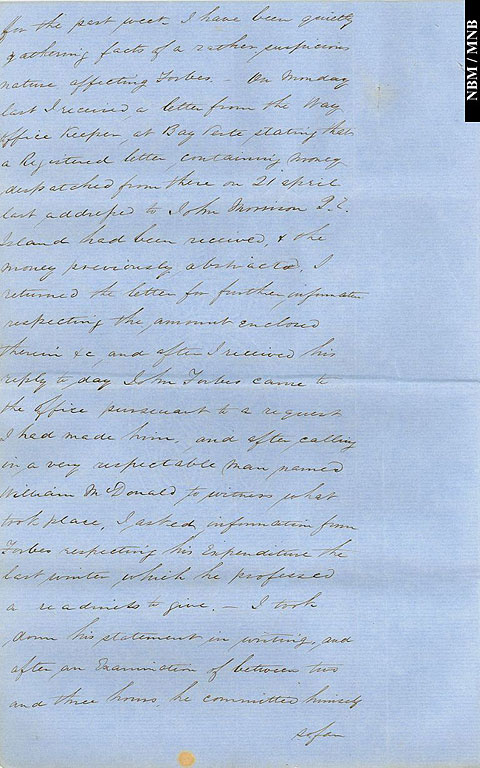 for the past week I have been quietly
gathering facts of a rather suspicious
nature affecting Forbes. – On Monday
last I received a letter from the Way
Office Keeper at Bay Verte stating that
a Registered letter containing money
despatched from there on 21 april
last addressed to John Morrison P.E.
Island had been received, & the
money previously abstracted. I
returned the letter for further information
respecting the amount enclosed
therein &c, and after I received his
reply to day John Forbes came to
the office pursuant to a request
I had made him, and after calling
in a very respectable man named
William McDonald to witness what
took place, I asked information from
Forbes respecting his Expenditure the
last winter which he professed
a readiness to give. – I took
down his statement in writing, and
after an Examination of between two
and three hours, he committed himself
so far
NBM / MNB